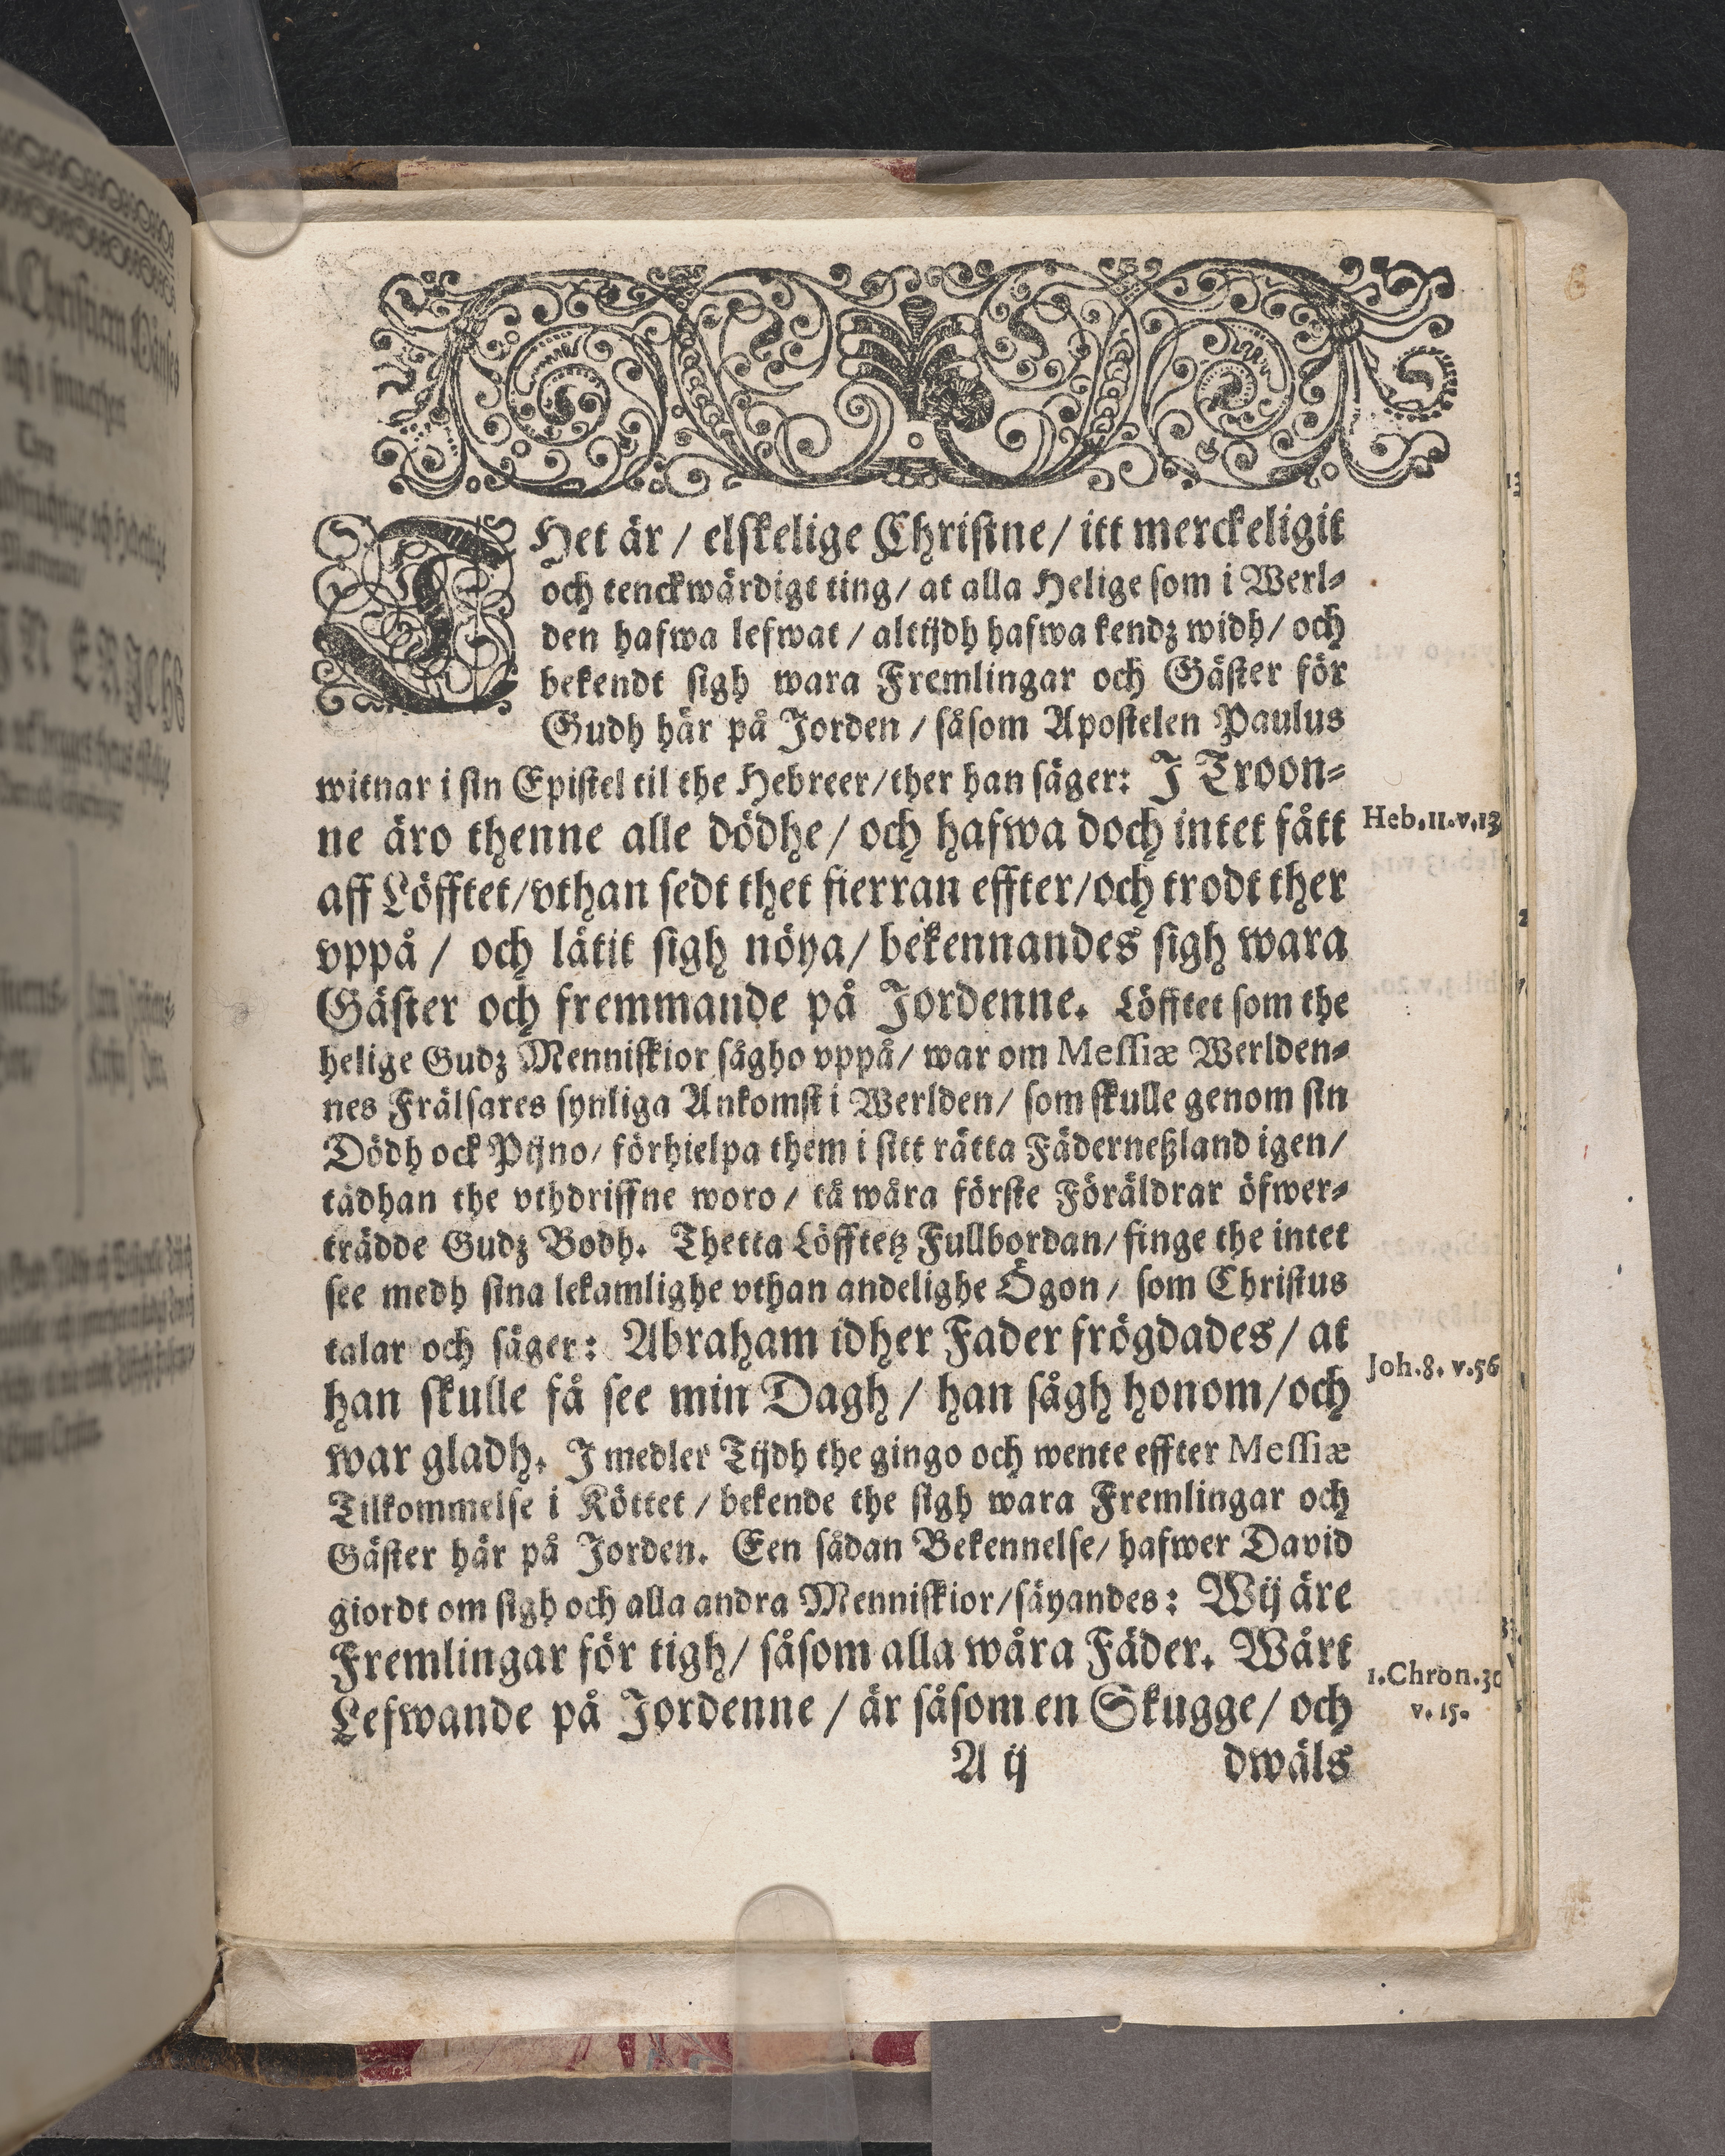 THet är / elskelige Christne / itt merckeligit
och tenckwärdigt ting / at alla Helige som i Werl-
den hafwa lefwat / alttijdh hafwa kendz widh / och
bekendt sigh wara Fremlingar och Gäster för
Gudh här på Jorden / såsom Apostelen Paulus
witnar i sin Epistel til the Hebreer / ther han säger: J Troon-
ne äro thenne alle dödhe / och hafwa doch intet fått
aff Löfftet / vthan sedt thet fierran effter / och trodt ther
vppå / och låtit sigh nöya / bekennandes sigh wara
Gäster och fremmande på Jordenne. Löfftet som the
helige Gudz Menniskior sågho vppå / war om Messiæ Werlden-
nes Frälsares synliga Ankomst i Werlden / som skulle genom sin
Dödh ock Pijno / förhielpa them i sitt rätta Fäderneßland igen /
tädhan the vthdriffne woro / tå wåra förste Föräldrar öfwer-
trädde Gudz Bodh. Thetta Löfftetz Fullbordan / finge the intet
see medh sina lekamlighe vthan andelighe Ögon / som Christus
talar och säger: Abraham idher Fader frögdades / at
han skulle få see min Dagh / han sågh honom / och
war gladh. J medler Tijdh the gingo och wente effter Messiæ
Tilkommelse i Köttet / bekende the sigh wara Fremlingar och
Gäster här på Jorden. Een sådan Bekennelse / hafwer David
giordt om sigh och alla andra Menniskior / säyandes: Wij äre
Fremlingar för tigh / såsom alla wåra Fäder. Wårt
Lefwande på Jordenne / är såsom en Skugge / och
A ij dwäls
Heb.11.v.13
Joh.8.v.56
1.Chron.30
v.15.